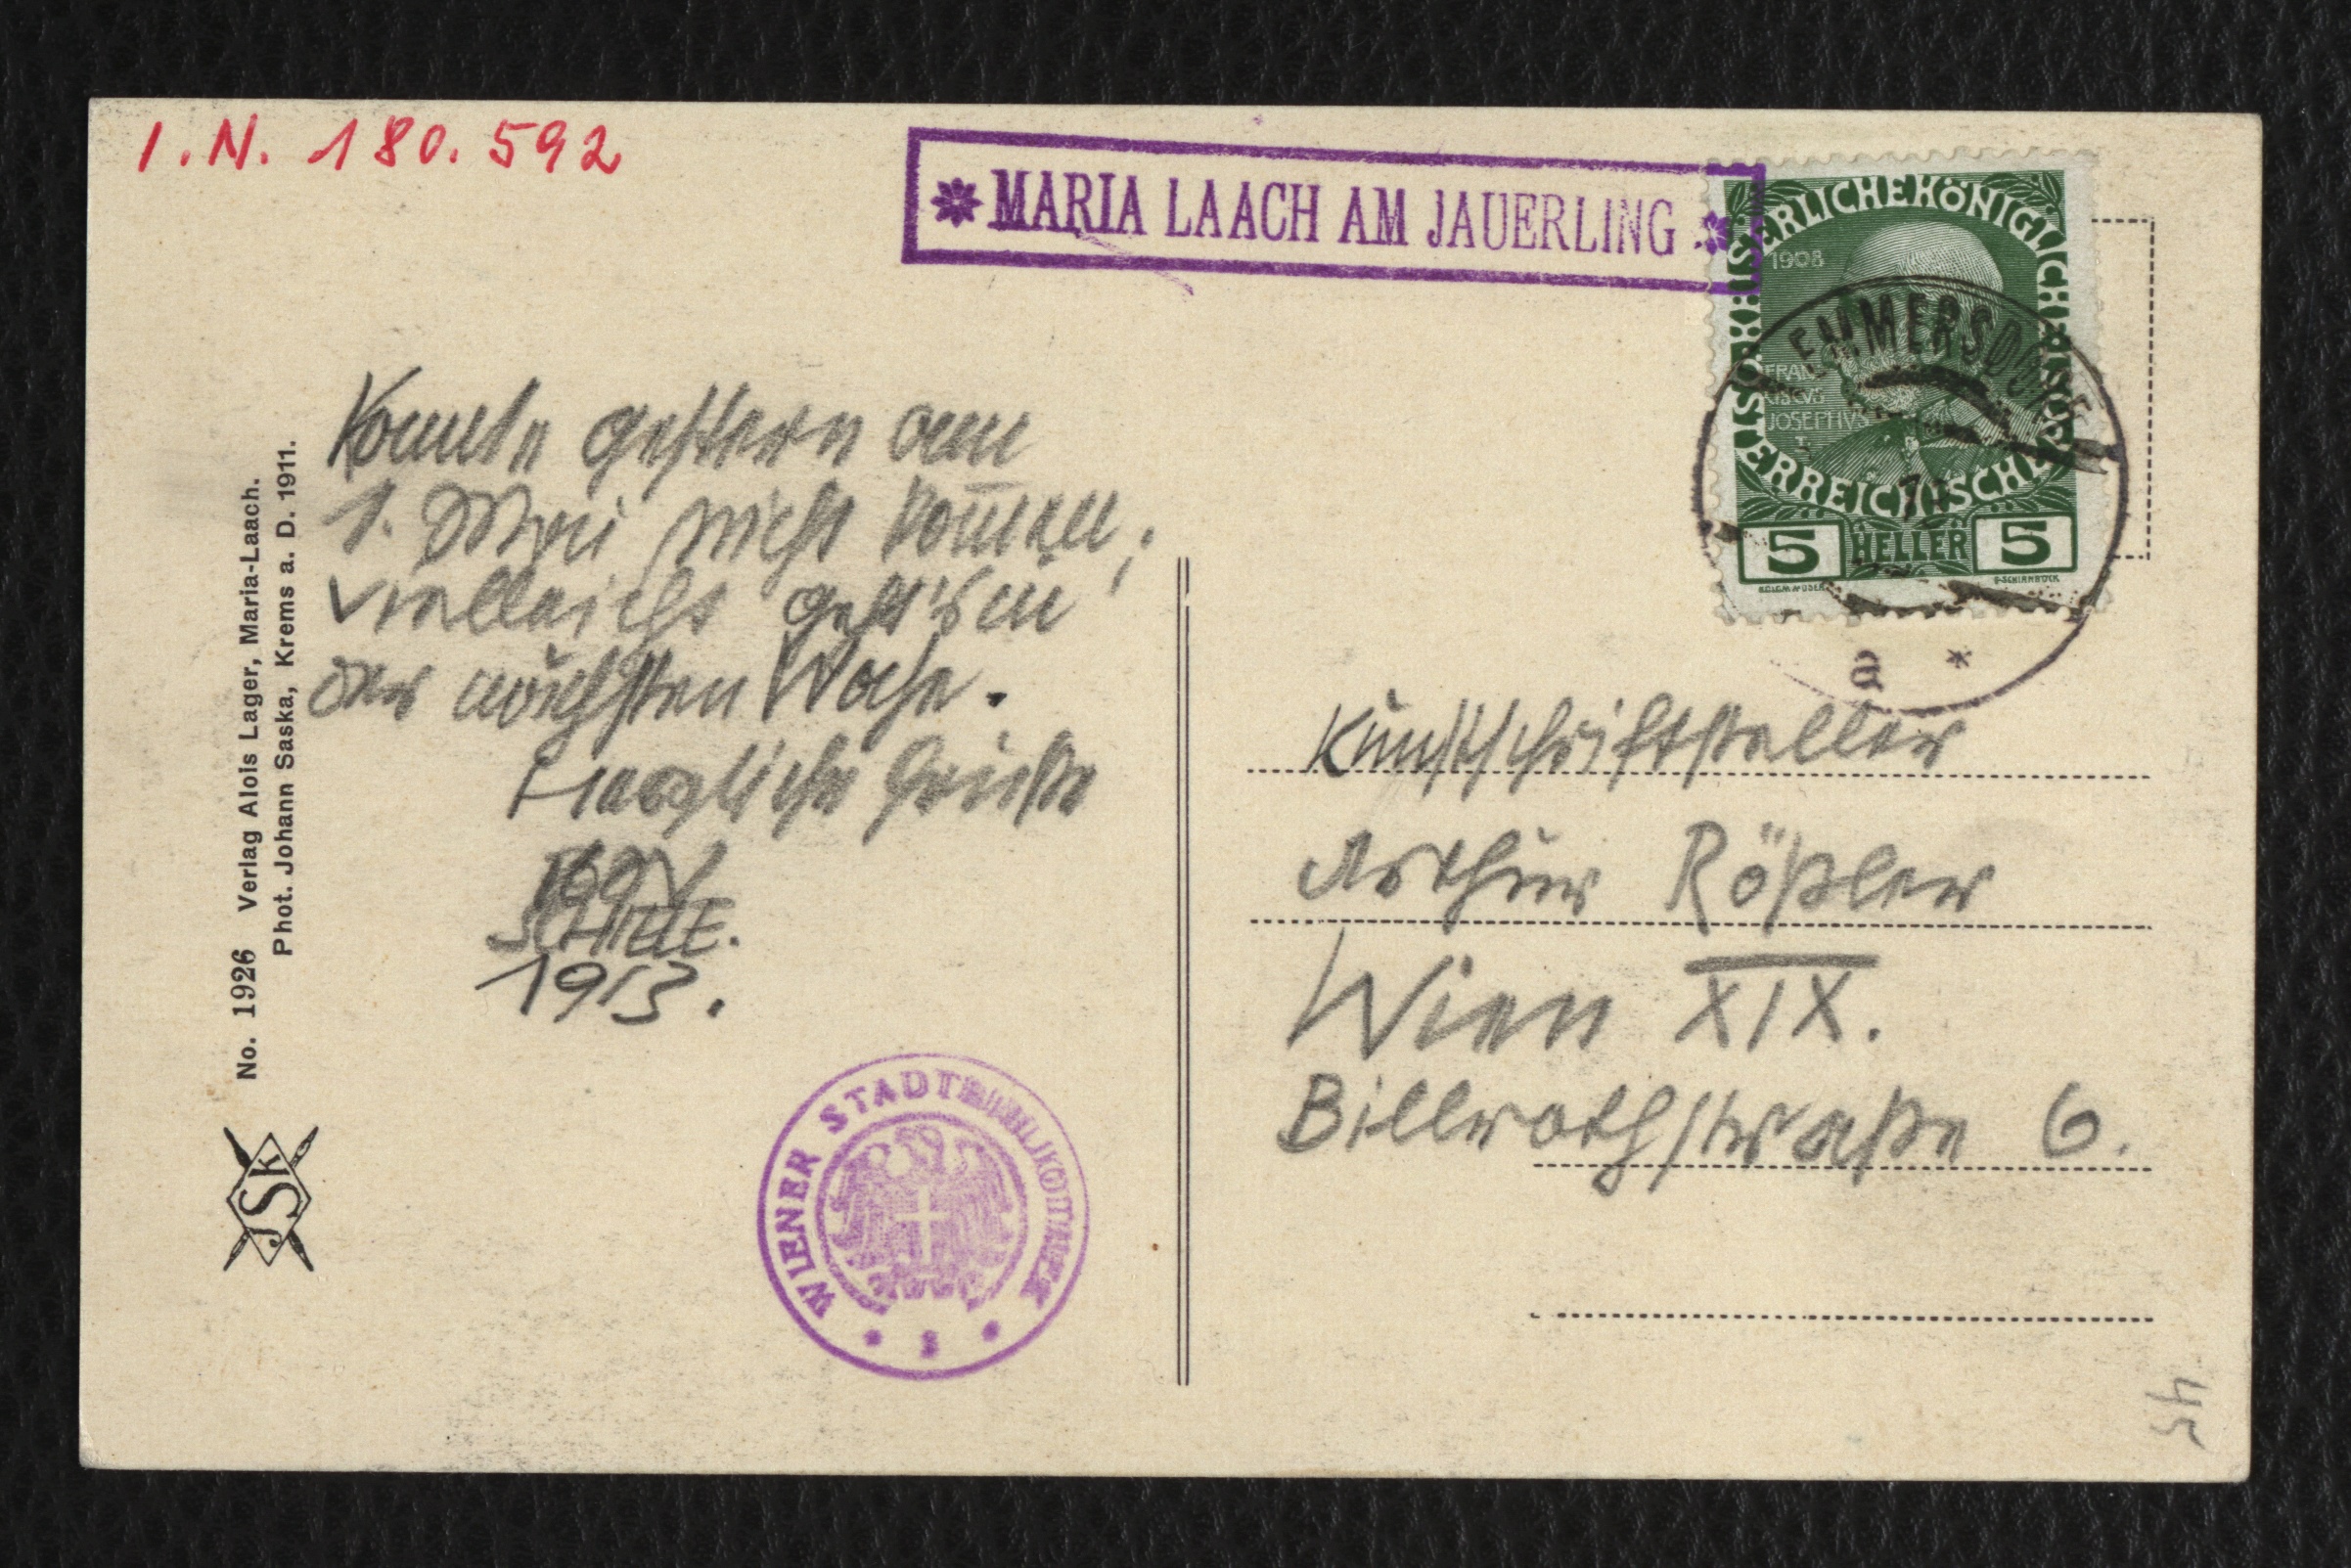 I. N. 180.592
* MARIA LAACH AM JAUERLING *
KAISERLICHE KÖNIGLICHE ÖSTERREICHISCHE
1908
FRAN
CISCVS
JOSEPHVS
I
5 HELLER 5
KOLOM. MOSER
F. SCHIRNBÖCK
EMMERSDORF
a *
Konnte gestern am
1. Mai nicht kom̅en;
vielleicht geht's in
der nächsten Woche.
Herzliche Grüße
EGON
SCHIELE.
1913.
Kunstschriftsteller
Arthur Rößler
Wien XIX.
Billrothstraße 6.
No. 1926 Verlag Alois Lager, Maria-Laach.
Phot. Johann Saska, Krems a. D. 1911.
JSK
WIENER STADTBIBLIOTHEK
45